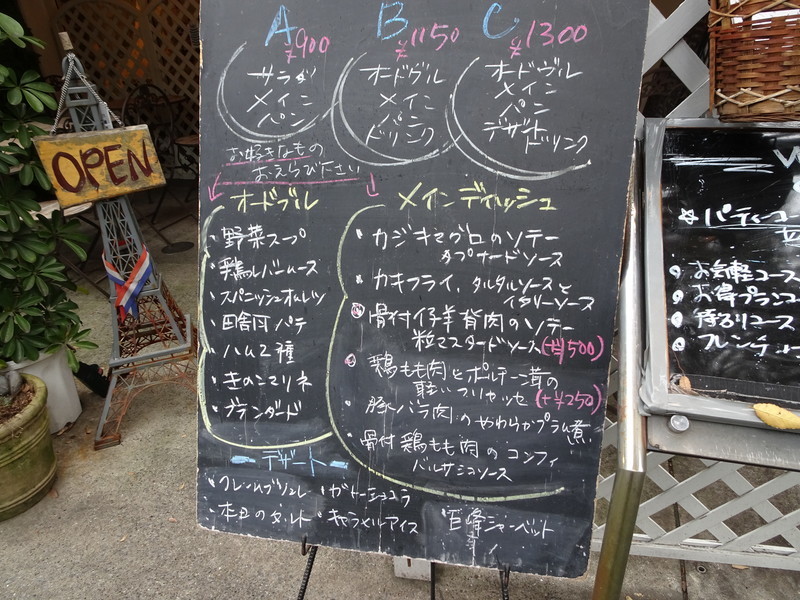 A ¥900
サラダ
メイン
パン
B ¥1150
オードヴル
メイン
パン
ドリンク
C ¥1300
オードヴル
メイン
パン
デザート
ドリンク
お好きなもの
おえらび下さい
オードブル
・野菜スープ
・鶏レバームース
・スパニッシュオムレツ
・田舎風パテ
・ハム2種
・きのこマリネ
・ブランダード
メインディッシュ
・カジキマグロのソテー
タプナードソース
・カキフライ、タルタルソースと
・骨付仔羊背肉のソテー
粒マスタードソース(+¥500)
・鶏もも肉とポルチーニ茸の
軽いフリカッセ(+¥250)
・豚バラ肉のやわらかプラム煮
・骨付鶏もも肉のコンフィ
バルサミコソース
デザート
・クレームブリュレ ・ガトーショコラ
・本日のタルト ・キャラメルアイス ・巨峰シャーベット
OPEN
☆パーティーコー
お気軽コース
お得プランコー
フレンチ